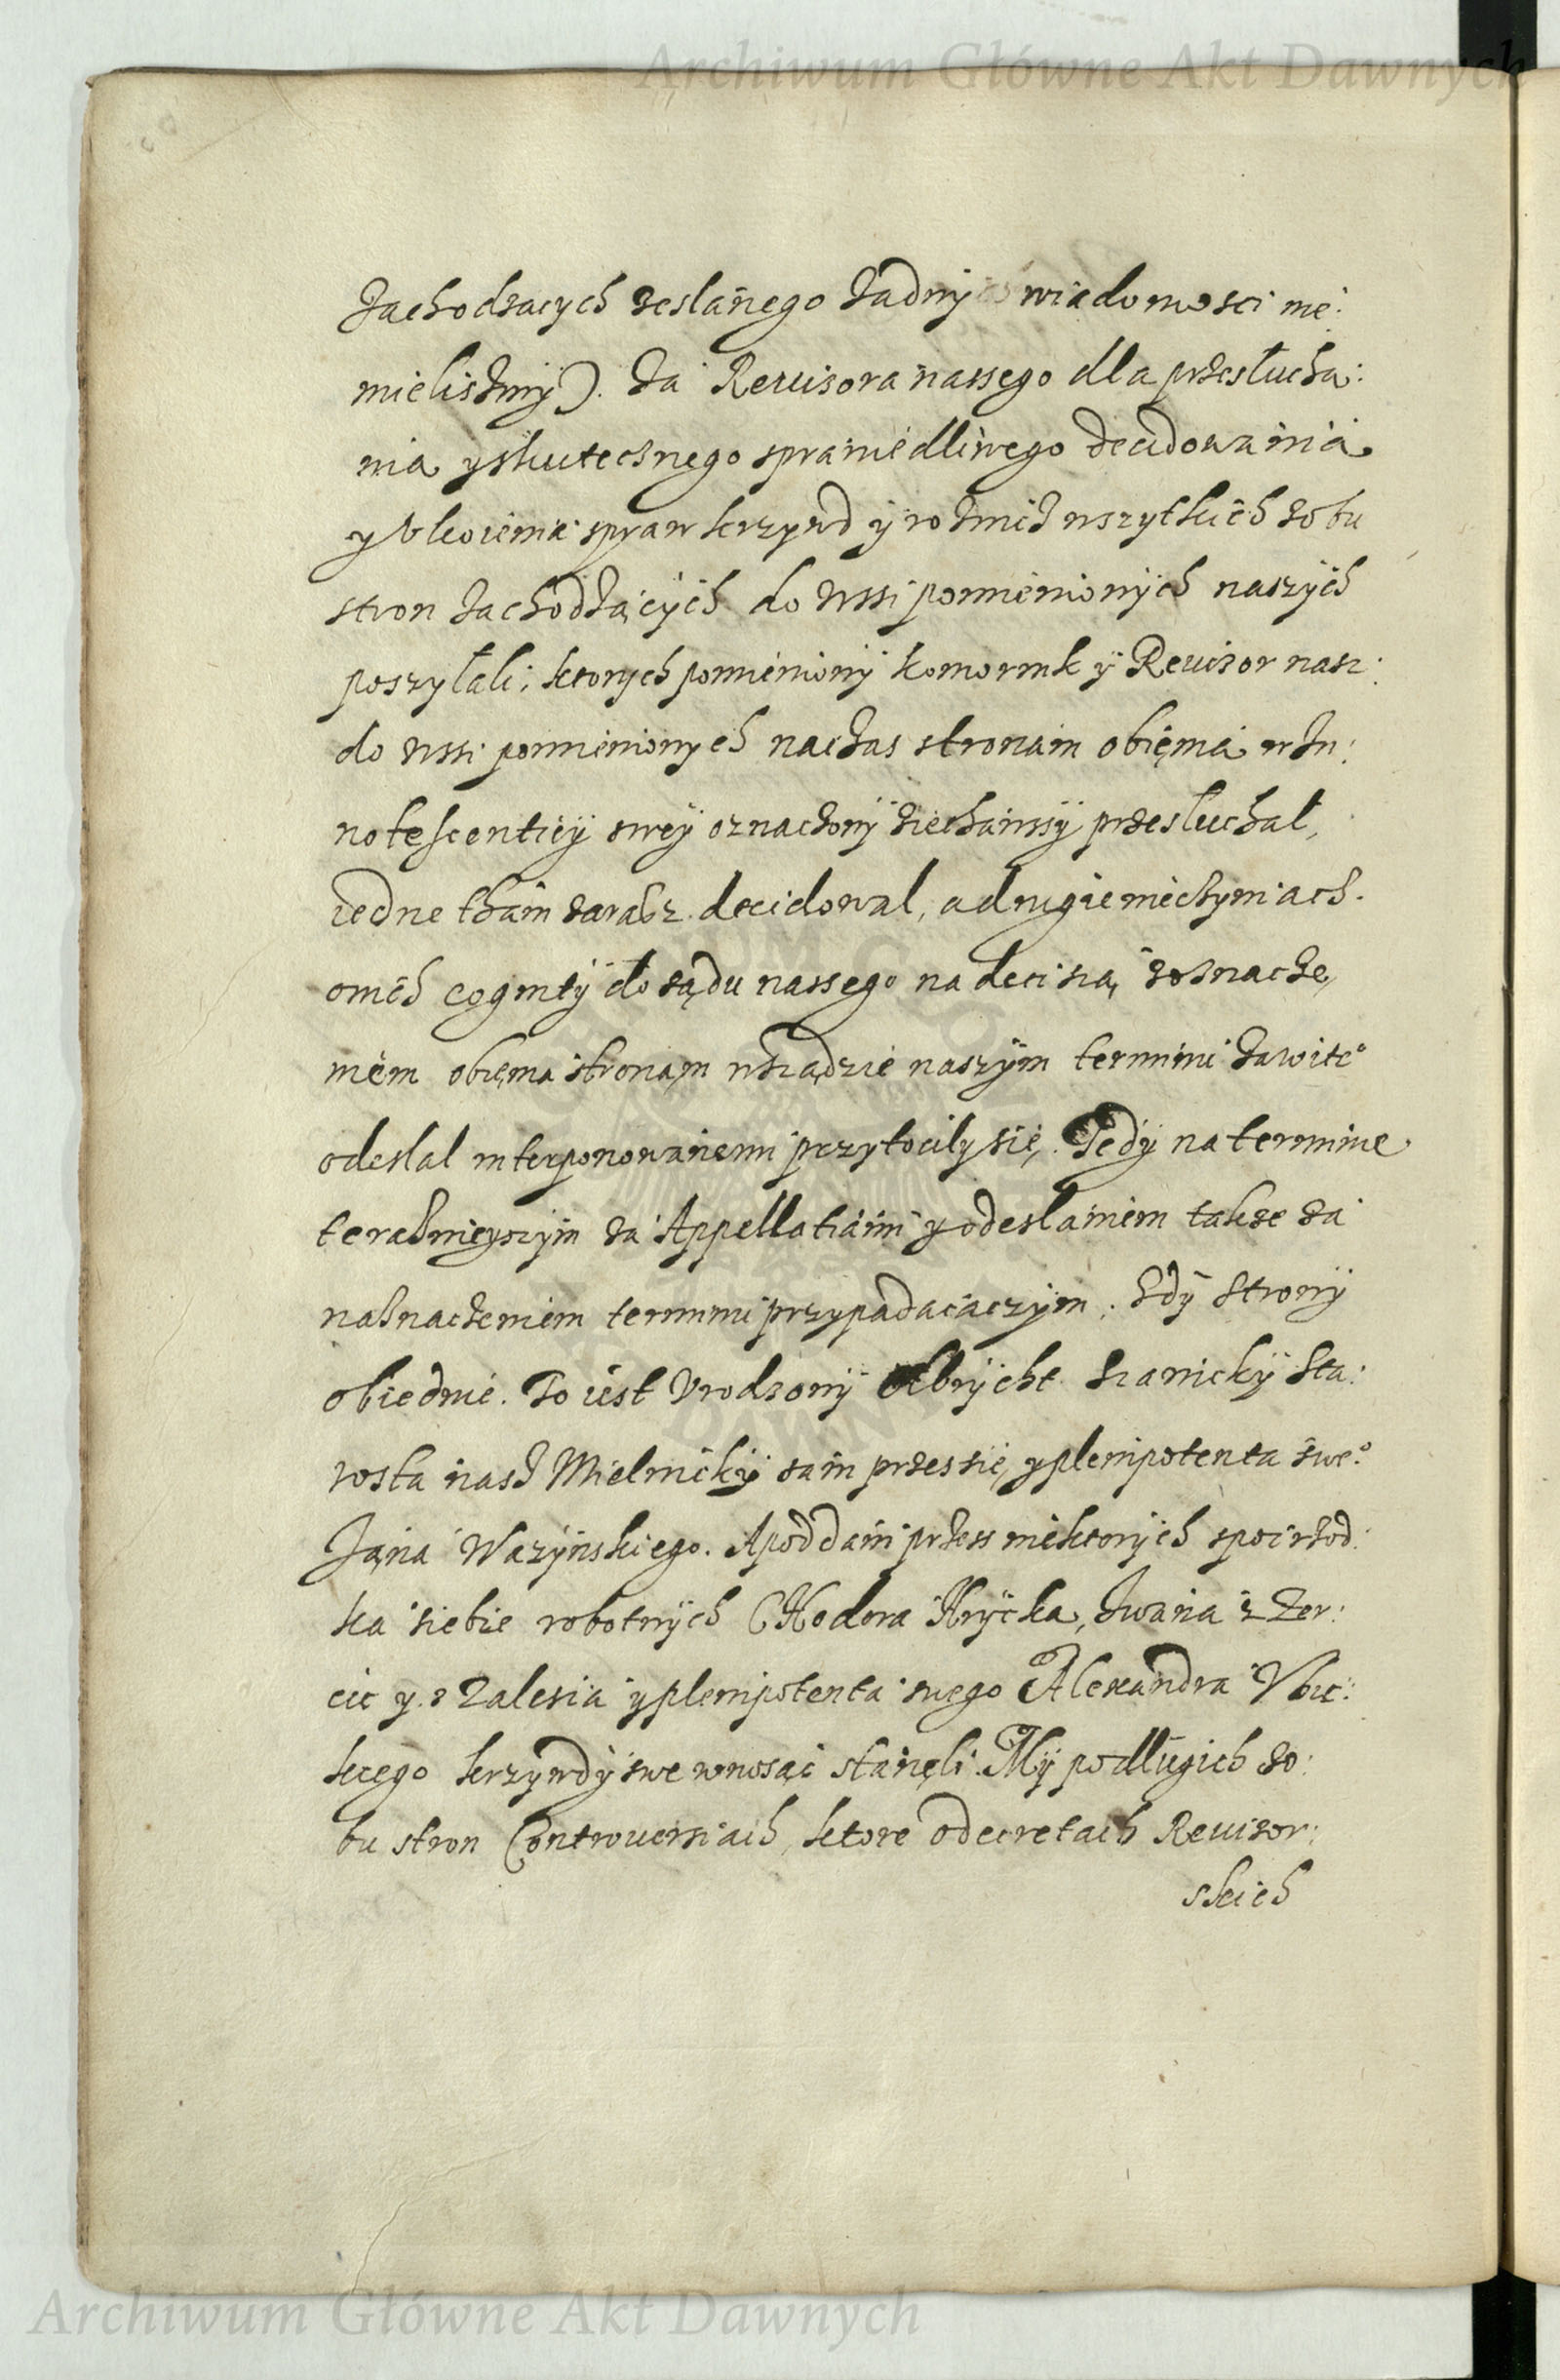 Archiwum Główne Akt Dawnych
zachodzacych zeslanego zadnych wiadomosci nie:
mielismy). za Reuisora nassego dla przeslucha:
nia y skutecznego sprawiedliwego decidowania
y Vkoienia spraw krzywd y roznic wszytkich zobu
stron zachodzących do wssi pomienionych naszych
poszylali; ktorych pomieniony komornik y Reuisor nasz:
do wssi pomienionych naczas stronam obięma w In:
notescentiey swey oznaczony ziechawsy przesluchal,
iedne tham zaraz decidowal, a drugie
o nich cognity do sądu nassego na decisią zoznacze,
niem obięma stronąm wsządzie naszym termini zawite°
odeslal interponowaniem przytoczyly się. Tedy na termine
teraznieyszym za Appellatiami y odeslaniem takze za
naznaczeniem termini przypadaiaczym. Gdy strony
obiedwie. To iest Vrodzony Olbrycht sta:
rosta nasz Mielnicky sam przes się, y plenipotenta swe°
Jana Wazynskiego. A poddani przess niektorych spoirzod:
ka siebie robotnych Chodora Hrycka, Iwana z Zer:
cic y z Zalesia y plenipotenta swego Alexandra Vbie:
kiego krzywdy swe wnosąc stanęli. My po dlugich zo:
bu stron Controuersiach, ktore o decretach Reuisor:
skich
Archiwum Główne Akt Dawnych